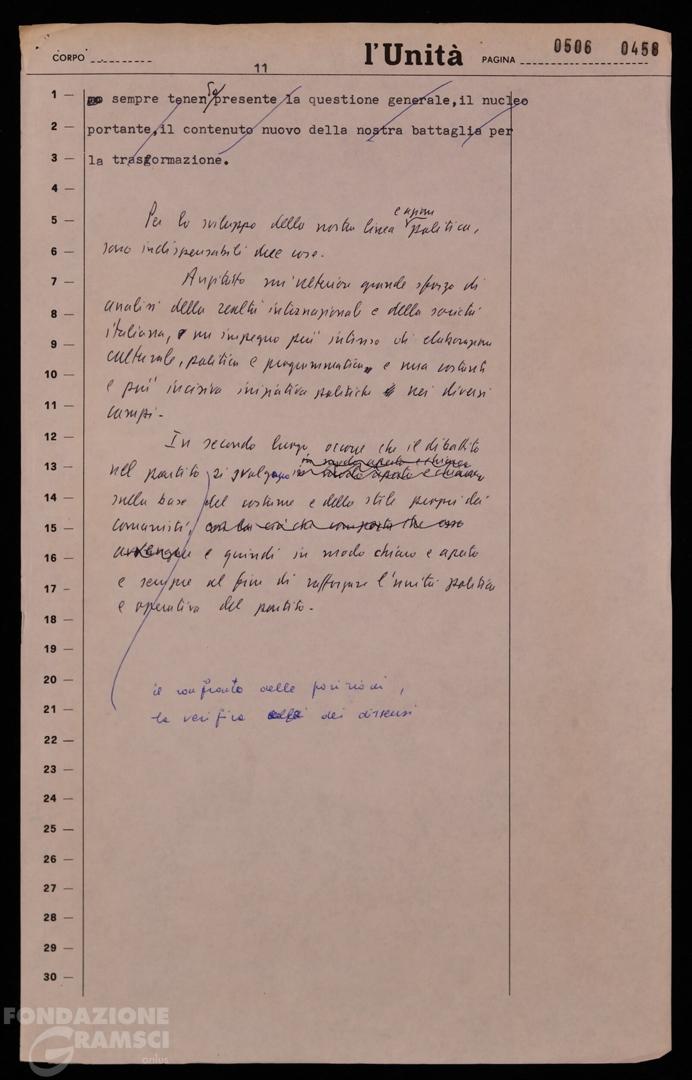 CORPO
11
l'Unità
PAGINA
0506 0458
1 — sempre tenendo presente la questione generale,il nucleo
2 — portante,il contenuto nuovo della nostra battaglia per
3 — la trasformazione.
4 —
5 — Per lo sviluppo della nostra linea e azione politica,
6 — sono indispensabili due cose.
7 — Anzitutto un'ulteriore grande sforzo di
8 — analisi della realtà internazionale e della società
9 — italiana, un impegno più intenso di elaborazione
culturale, politica e programmatica e una costante
10 — e più incisiva iniziativa politica nei diversi
11 — campi.
12 — In secondo luogo, occorre che il dibattito
in modo aperto e chiaro
13 — nel partito si svolgano in modo aperto e chiaro
14 — sulla base del costume e dello stile propri dei
15 — comunisti, che esso
16 — avvengano e quindi in modo chiaro e aperto
17 — e sempre al fine di rafforzare l'unità politica
e operativa del partito.
18 —
19 —
20 — il confronto delle posizioni,
21 — la verifica dei dissensi
22 —
23 —
24 —
25 —
26 —
27 —
28 —
29 —
30 —
FONDAZIONE
GRAMSCI
onlus